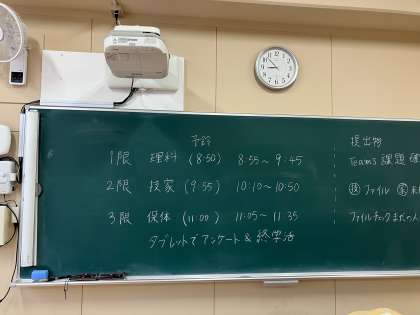 予鈴
1限 理科 (8:50) 8:55～9:45
2限 技家 (9:55) 10:10～10:50
3限 保体 (11:00) 11:05～11:35
タブレットでアンケート&終学活
提出物
Teams 課題
技 ファイル 家
ファイルチェックまだの人